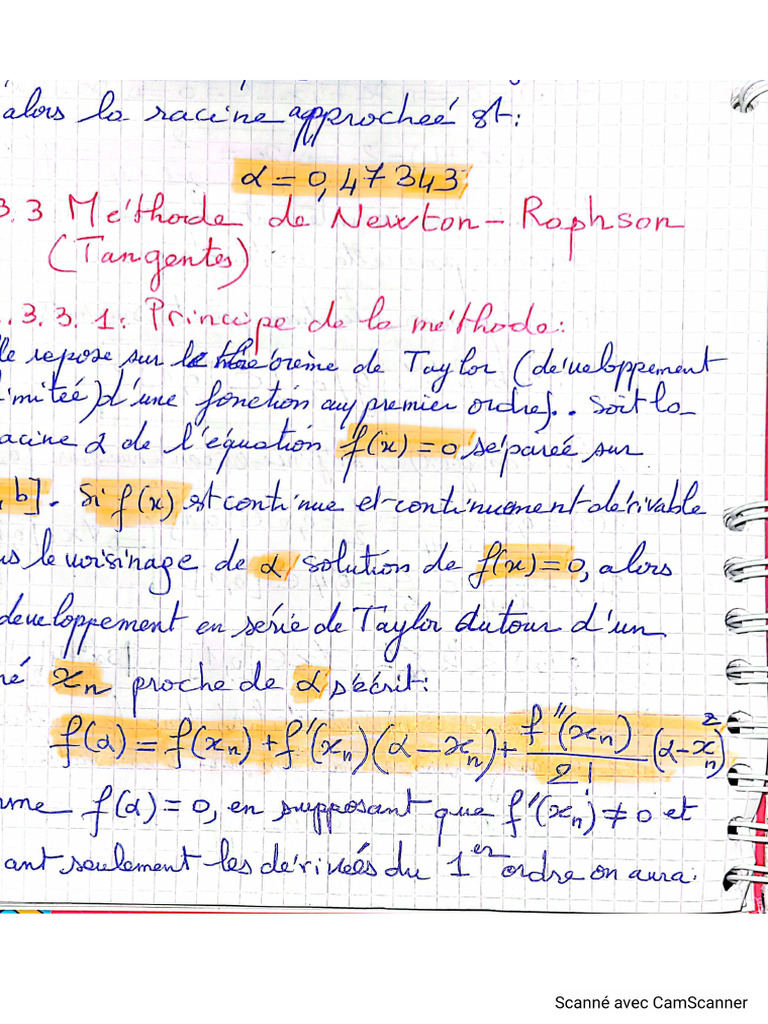 alors la racine approcheé est:
α = 0,47343
3.3 Méthode de Newton - Raphson
(Tangentes)
. 3.3.1: Principe de la méthode:
le repose sur le théorème de Taylor (développement
limiteé) d'une fonction au premier ordre).. Soit la
acine α de l'équation f(x) = 0 séparée sur
, b]. Si f(x) est continue et continuement dérivable
ns le voisinage de α solution de f(x) = 0, alors
développement en série de Taylor autour d'un
né xₙ proche de α s'écrit:
f(α) = f(xₙ) + f'(xₙ)(α - xₙ) + f''(xₙ)/2! (α - xₙ)²
mme f(α) = 0, en supposant que f'(xₙ) ≠ 0 et
ant seulement les dérivées du 1er ordre on aura:
Scanné avec CamScanner